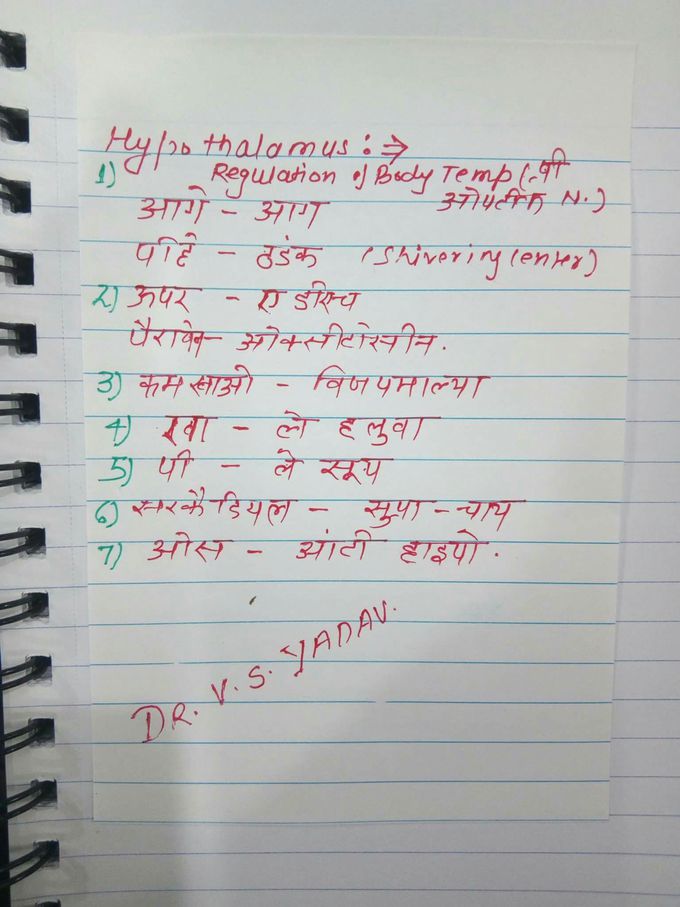 Hypothalamus :⇒
1) Regulation of Body Temp (प्री
ओपटीक N.)
आगे - आग
पीछे - ठडंक (Shivering Center)
2) ऊपर - ए डीएच
पैरावे - ओक्सीटोस्नीन.
3) कम खाओ - विजयमाल्या
4) खा - ले हलुवा
5) पी - ले सूप
6) सरकैडियल - सुप्रा - चाय
7) ओस - आंटी हाइपो.
DR. V. S. YADAV.